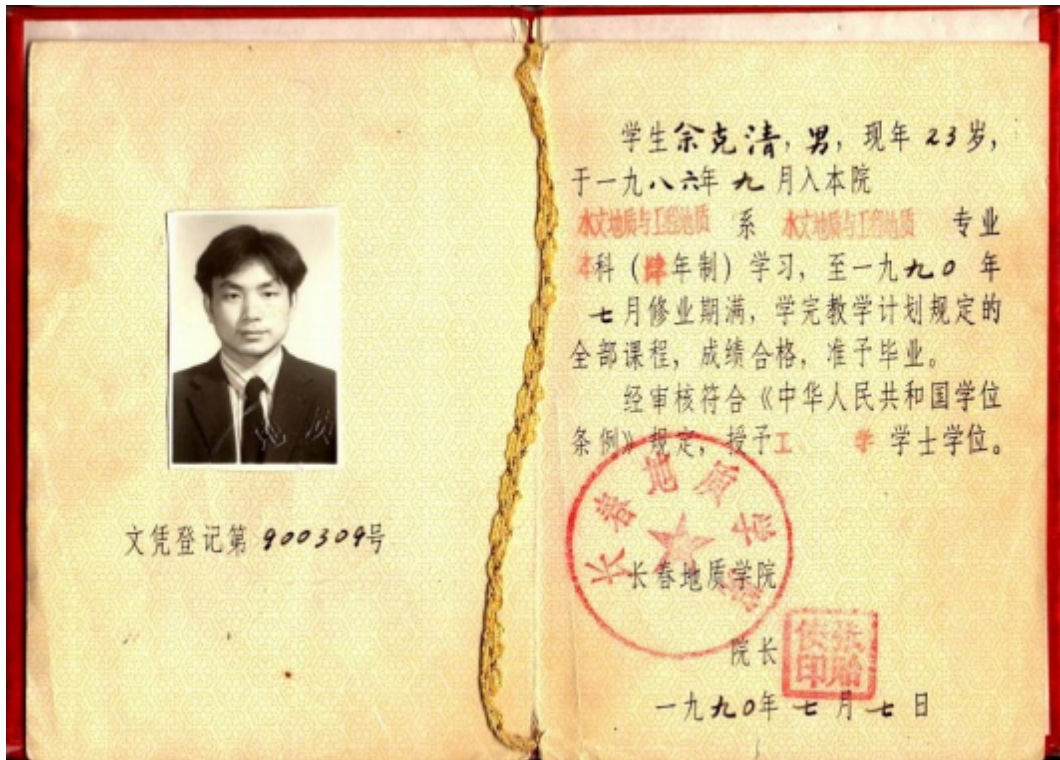 文凭登记第900309号
学生余克清，男，现年23岁，
于一九八六年九月入本院
水文地质与工程地质 系 水文地质与工程地质 专业
本科（肆年制）学习，至一九九0年
七月修业期满，学完教学计划规定的
全部课程，成绩合格，准予毕业。
经审核符合《中华人民共和国学位
条例》规定，授予工 学 学士学位。
长春地质学院
长春地质学院
院长
一九九0年七月七日